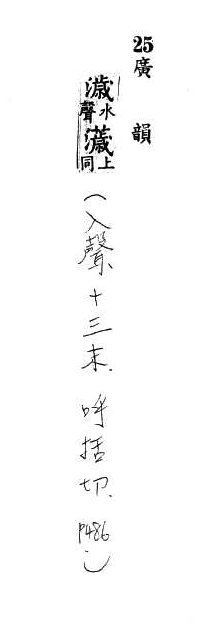 25廣韻
濊水聲上同
(入聲十三末、呼括切、P486)